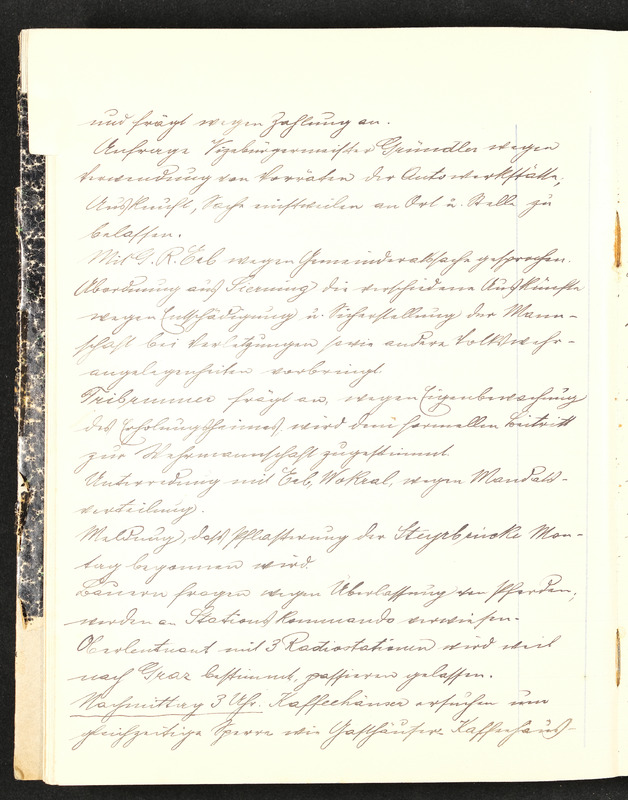 und frägt wegen Zahlung an.
Anfrage Vizebürgermeister Gründler wegen
Verwendung von Vorräten der Autowerkstätte,
Auskunft, Sache einstweilen an Ort u. Stelle zu
belassen.
Mit G. R. Eeb wegen Gemeinderatsache gesprochen.
Abordnung aus Sierning die verschiedene Auskünfte
wegen Entschädigung u. Sicherstellung der Mann-
schaft bei Verletzungen sowie andere Volkswehr-
angelegenheiten vorbringt.
Tribrunner frägt an, wegen Eigenbewachung
des Erholungsheimes, wird dem formellen Beitritt
zur Wehrmannschaft zugestimmt.
Unterredung mit Eeb, Wokral, wegen Mandats-
verteilung.
Meldung, daß Pflasterung der Steyrbrücke Mon-
tag begonnen wird.
Bauern fragen wegen Überlassung von Pferden,
werden an Stationskommando verwiesen.
Oberleutnant mit 3 Radiostationen wird weil
nach Graz bestimmt, passieren gelassen.
Nachmittag 3 Uhr. Kaffeehäuser ersuchen um
gleichzeitige Sperre wie Gasthäuser. Kaffeehaus-